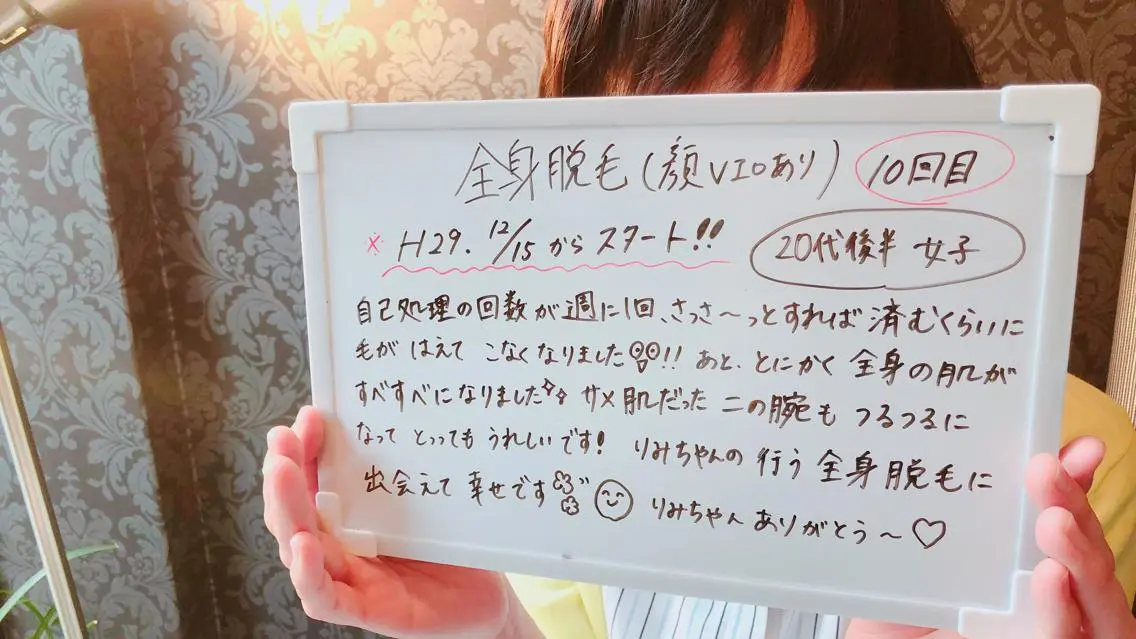 全身脱毛(顔VIOあり) 10回目
※ H29. 12/15 からスタート!!
20代後半 女子
自己処理の回数が週に1回、さっさ〜っとすれば済むくらいに
毛がはえてこなくなりました!! あと、とにかく全身の肌が
すべすべになりました サメ肌だった二の腕もつるつるに
なってとってもうれしいです! りみちゃんの行う全身脱毛に
出会えて幸せです りみちゃんありがとう〜♡